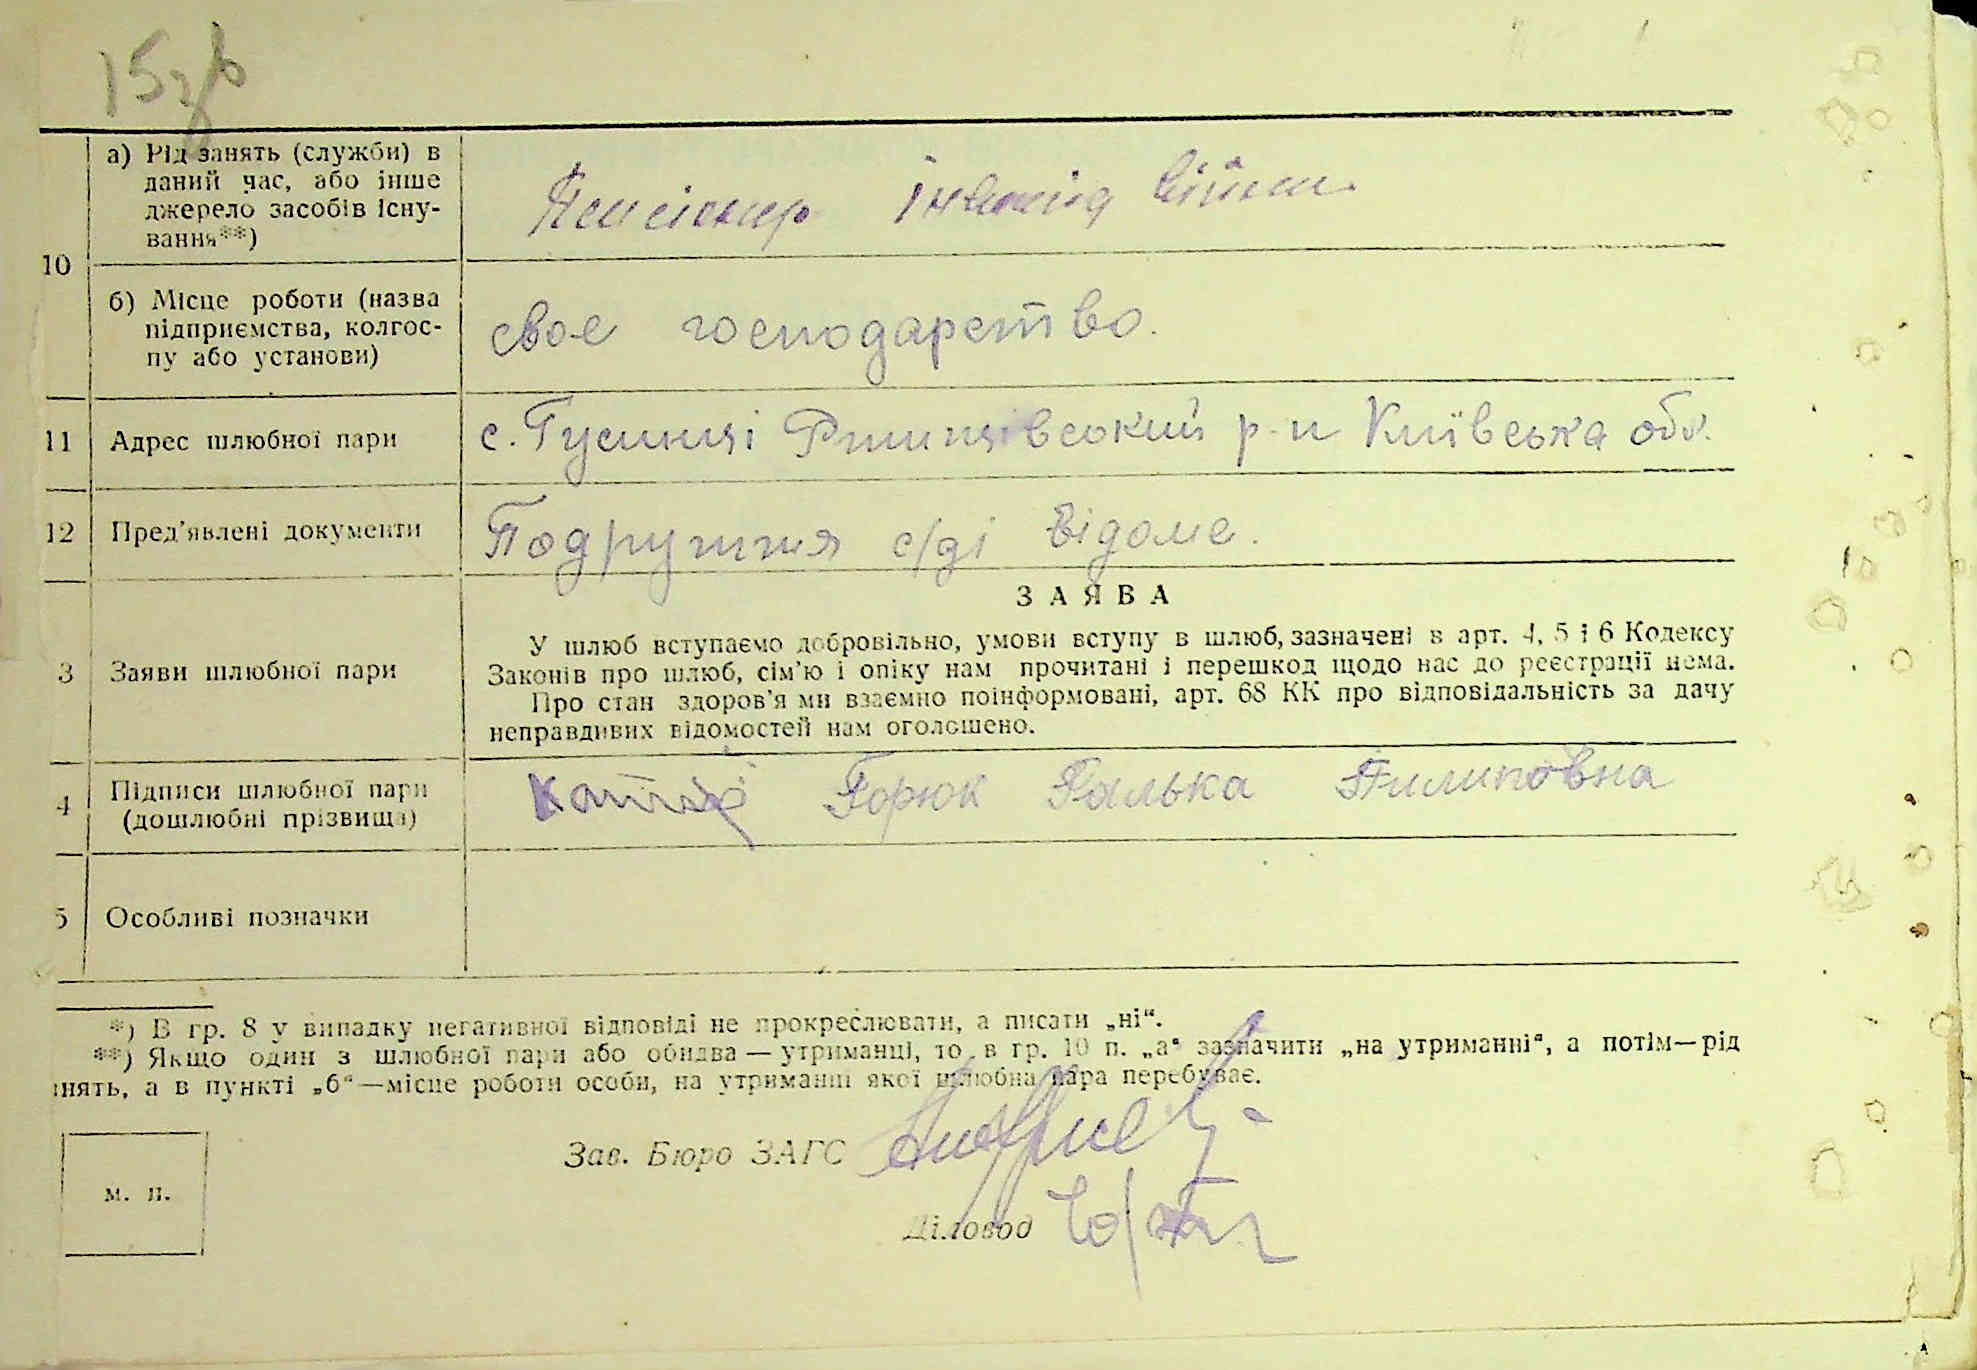 15зв
а) Рід занять (служби) в
даний час, або інше
джерело засобів існу-
вання**)
Пенсіонер інвалід війни.
10
б) Місце роботи (назва
підприємства, колгос-
пу або установи)
своє господарство.
11 Адрес шлюбної пари с. Гусинці Ржищівський р-н Київська обл.
12 Пред'явлені документи Подружжя с/ді відоме.
ЗАЯВА
3 Заяви шлюбної пари
У шлюб вступаємо добровільно, умови вступу в шлюб, зазначені в арт. 4, 5 і 6 Кодексу
Законів про шлюб, сім'ю і опіку нам прочитані і перешкод щодо нас до реєстрації нема.
Про стан здоров'я ми взаємно поінформовані, арт. 68 КК про відповідальність за дачу
неправдивих відомостей нам оголошено.
4 Підписи шлюбної пари
(дошлюбні прізвища)
Горюк Галька Пилиповна
5 Особливі позначки
*) В гр. 8 у випадку негативної відповіді не прокреслювати, а писати „ні“.
**) Якщо один з шлюбної пари або обидва — утриманці, то в гр. 10 п. „а“ зазначити „на утриманні“, а потім—рід
нять, а в пункті „б“—місце роботи особи, на утриманні якої шлюбна пара перебуває.
Зав. Бюро ЗАГС
м. п.
Діловод